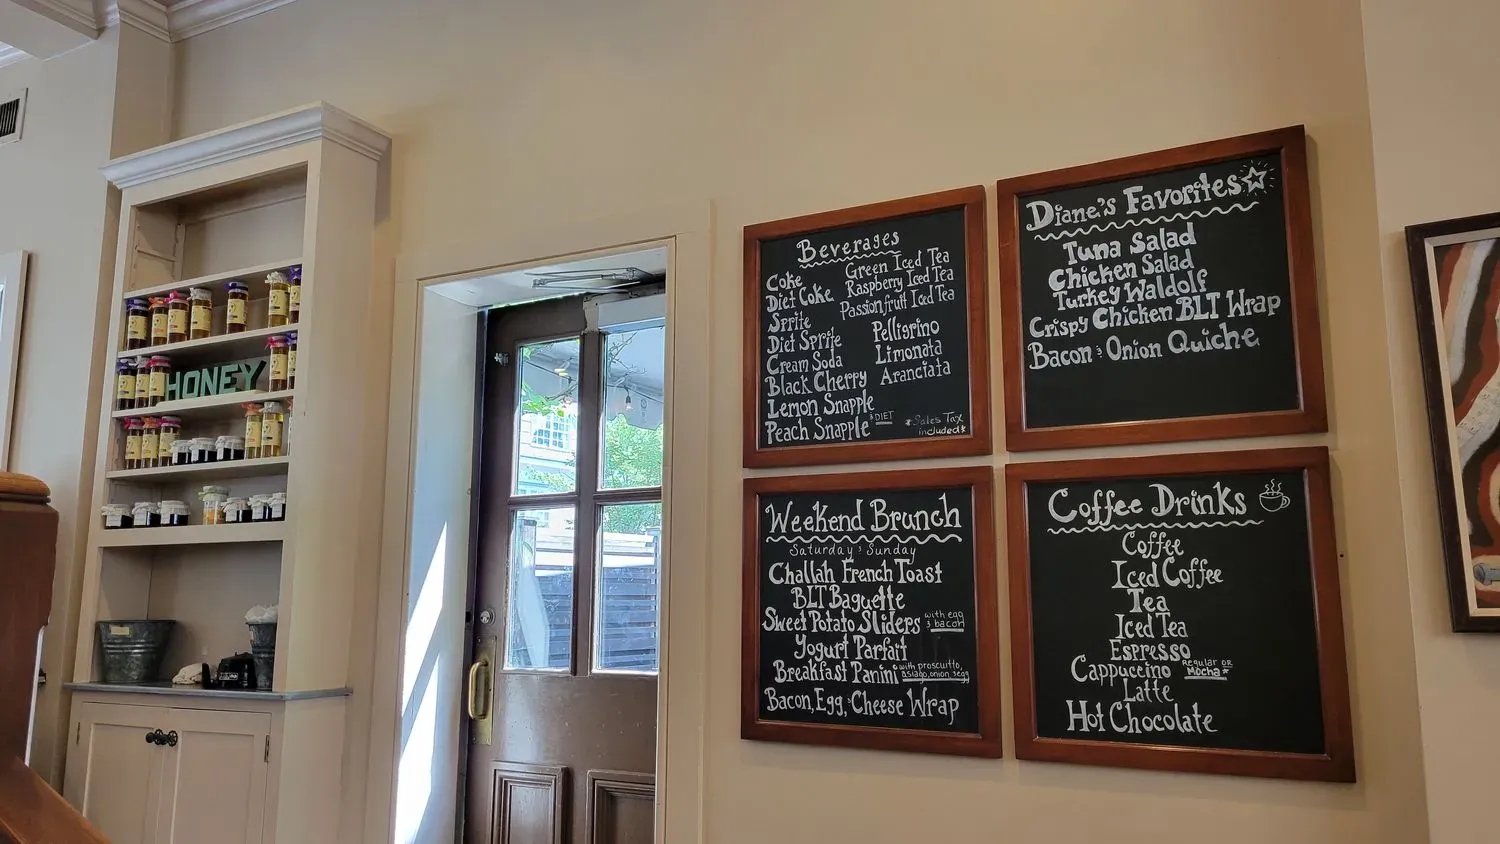 HONEY
Beverages
Coke
Diet Coke
Sprite
Diet Sprite
Cream Soda
Black Cherry
Lemon Snapple
Peach Snapple & DIET
Green Iced Tea
Raspberry Iced Tea
Passionfruit Iced Tea
Pelligrino
Limonata
Aranciata
*Sales Tax
included*
Diane's Favorites
Tuna Salad
Chicken Salad
Turkey Waldolf
Crispy Chicken BLT Wrap
Bacon & Onion Quiche
Weekend Brunch
Saturday & Sunday
Challah French Toast
BLT Baguette
Sweet Potato Sliders with egg
& bacon
Yogurt Parfait
Breakfast Panini with proscuitto,
asiago, onion & egg
Bacon, Egg, & Cheese Wrap
Coffee Drinks
Coffee
Iced Coffee
Tea
Iced Tea
Espresso
Cappuccino Regular OR
Mocha*
Latte
Hot Chocolate